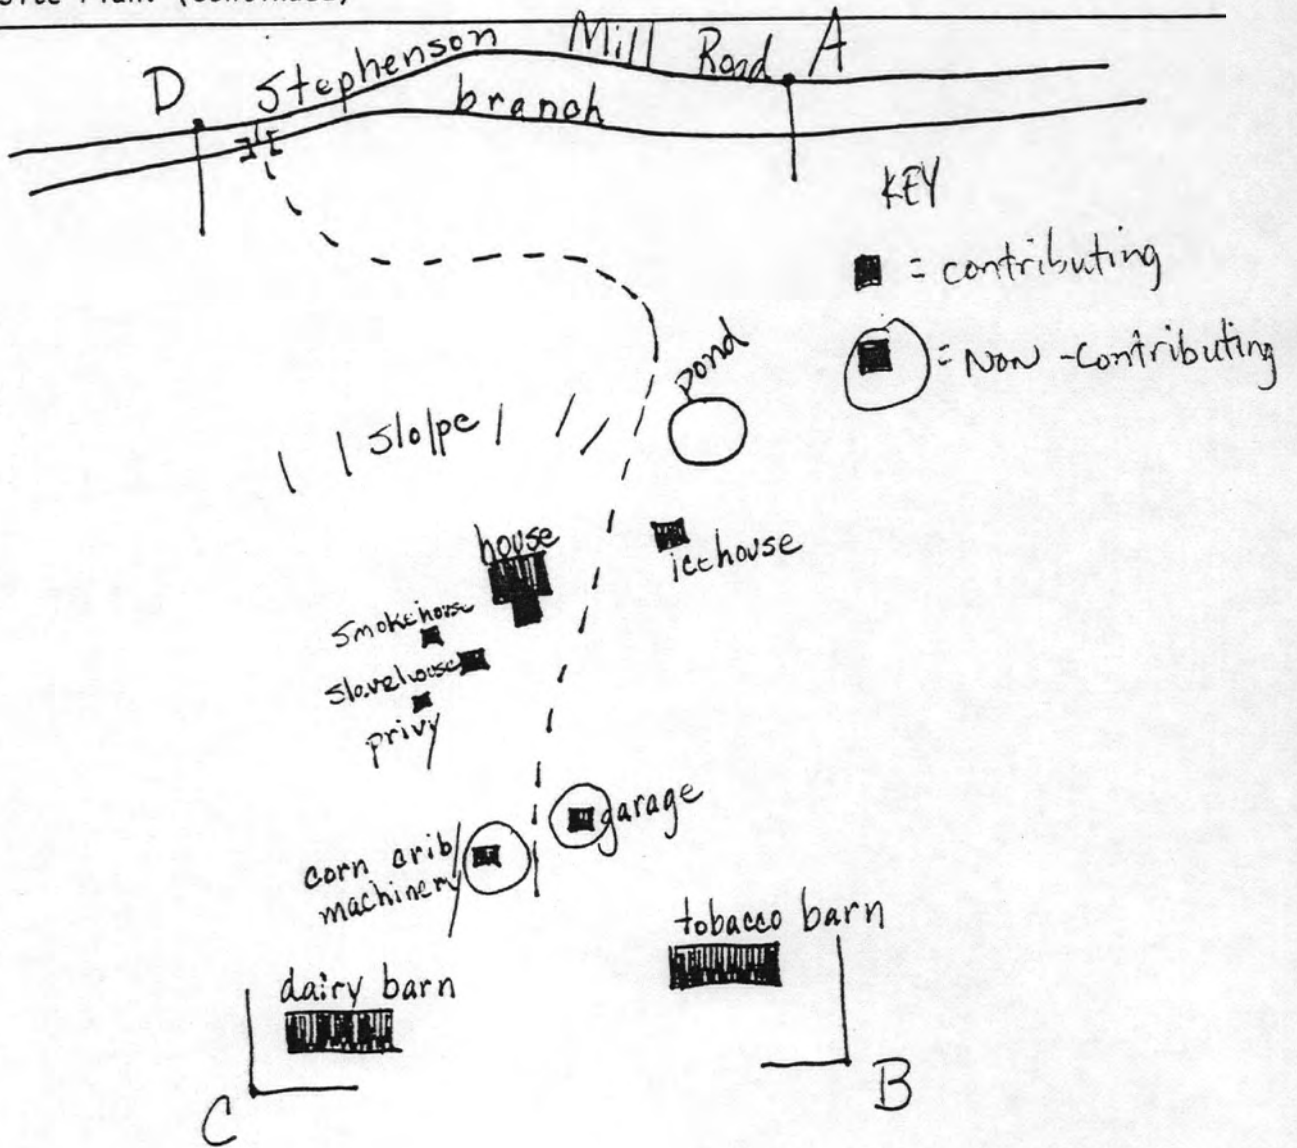 Stephenson Mill Road A
D
branch
KEY
= contributing
= Non-Contributing
pond
slope
house
icehouse
smokehouse
slavehouse
privy
garage
corn crib/
machinery
tobacco barn
dairy barn
B
C